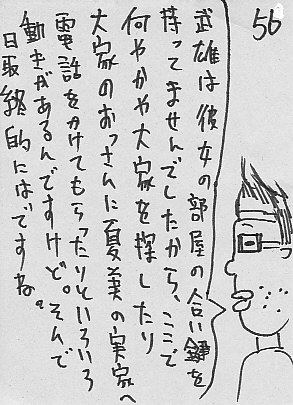 56
武雄は彼女の部屋の合い鍵を
持ってませんでしたから、ここで
何やかや大家を探したり
大家のおっさんに夏美の実家へ
電話をかけてもらったりといろいろ
動きがあるんですけど。そんで
最終的にはですね。